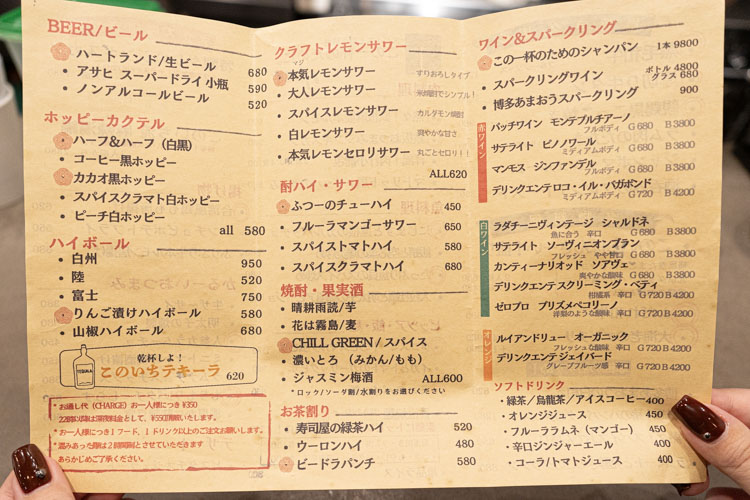 BEER/ビール
ハートランド/生ビール 680
・アサヒ スーパードライ 小瓶 590
・ノンアルコールビール 520
ホッピーカクテル
ハーフ&ハーフ（白黒）
・コーヒー黒ホッピー
カカオ黒ホッピー
・スパイスクラマト白ホッピー
・ピーチ白ホッピー
all 580
ハイボール
・白州 950
・陸 520
・富士 750
りんご漬けハイボール 580
・山椒ハイボール 680
TEQUILA
乾杯しよ！
このいちテキーラ 620
*お通し代（CHARGE）お一人様につき¥350
22時以降は深夜料金として、¥550頂戴いたします。
*お一人様につき1フード、1ドリンク以上のご注文お願いします。
混みあった際は2時間制とさせていただきます
あらかじめご了承ください。
クラフトレモンサワー
マジ
本気レモンサワー すりおろしタイプ
・大人レモンサワー 米焼酎でシンプル！
・スパイスレモンサワー カルダモン焼酎
・白レモンサワー 爽やかな甘さ
・本気レモンセロリサワー 丸ごとセロリ！！
ALL620
酎ハイ・サワー
ふつーのチューハイ 450
・フルーラマンゴーサワー 650
・スパイストマトハイ 580
・スパイスクラマトハイ 680
焼酎・果実酒
・晴耕雨読/芋
・花は霧島/麦
CHILL GREEN / スパイス
・濃いとろ （みかん/もも）
・ジャスミン梅酒 ALL600
*ロック/ソーダ割/水割りをお選びください
お茶割り
・寿司屋の緑茶ハイ 520
・ウーロンハイ 480
ビードラパンチ 580
ワイン&スパークリング
この一杯のためのシャンパン 1本 9800
・スパークリングワイン ボトル 4800
グラス 680
・博多あまおうスパークリング 900
赤ワイン
パッチワイン モンテプルチアーノ
フルボディ G 680 B 3800
サテライト ピノノワール
ミディアムボディ G 680 B 3800
マンモス ジンファンデル
フルボディ G 680 B 3800
デリンクエンテロコ・イル・バガボンド
ミディアムボディ G 720 B 4200
白ワイン
ラダチーニヴィンテージ シャルドネ
魚に合う 辛口 G 680 B 3800
サテライト ソーヴィニオンブラン
フレッシュ やや甘口 G 680 B 3800
カンティーナリオッド ソアヴェ
爽やかな酸味 G 680 B 3800
デリンクエンテスクリーミング・ベティ
柑橘系 辛口 G 720 B 4200
ゼロプロ プリズメペコリーノ
洋梨のような酸味 辛口 G 720 B 4200
オレンジ
ルイアンドリュー オーガニック
フレッシュな酸味 辛口 G 720 B 4200
デリンクエンテジェイバード
グレープフルーツ感 辛口 G 720 B 4200
ソフトドリンク
・緑茶/烏龍茶/アイスコーヒー 400
・オレンジジュース 450
・フルーララムネ（マンゴー） 450
・辛口ジンジャーエール 400
・コーラ/トマトジュース 400